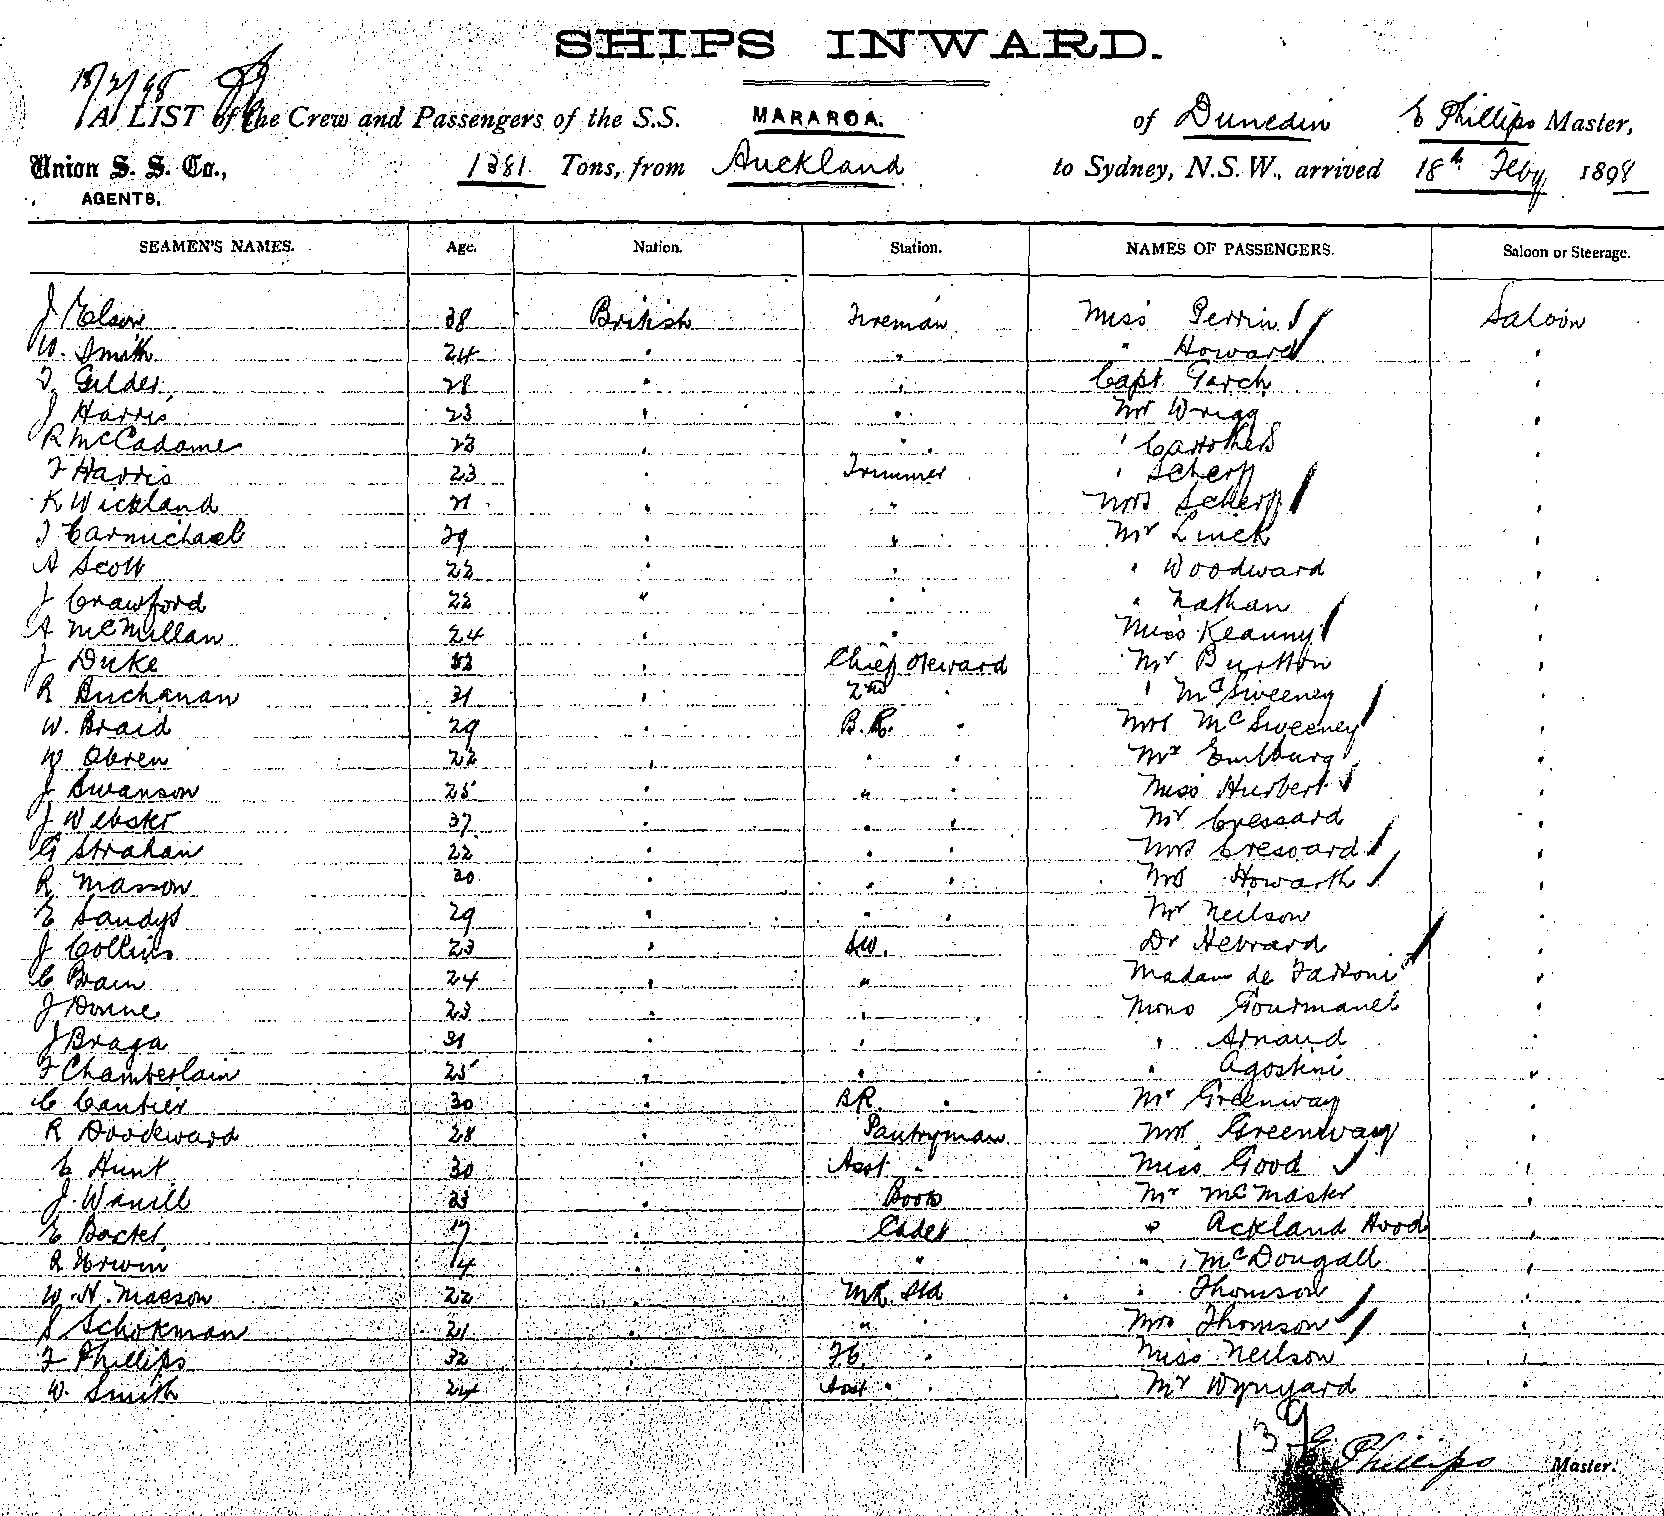 SHIPS INWARD.
18/2/98
A LIST of the Crew and Passengers of the S.S. MARAROA. of Dunedin E Phillips Master,
Union S. S. Co., 1381 Tons, from Auckland to Sydney, N.S.W., arrived 18th Feby 1898
AGENTS.
SEAMEN'S NAMES. Age. Nation. Station. NAMES OF PASSENGERS. Saloon or Steerage.
J Elson 38 British Fireman Miss Perrin Saloon
W. Smith 24 " " " Howard "
F Gilder 28 " " Capt Garch "
J Harris 23 " " Mr Wrigg "
R McCadame 23 " " " Carrothers "
F Harris 23 " Trimmer " Scherp "
K Wickland 21 " " Mrs Scherp "
F Carmichael 29 " " Mr Linck "
A Scott 22 " " " Woodward "
J Crawford 22 " " " Nathan "
A McMillan 24 " " Miss Keanny "
J Duke " Chief Steward Mr Burtton "
R Buchanan 31 " 2nd " " McSweeney "
W. Braid 29 " B.R. " Mrs McSweeney "
W Obren 22 " " " Mr "
J Swanson 25 " " " Miss Hurbert "
J Webster 37 " " " Mr Cressard "
G Strahan 22 " " " Mrs Cressard "
R Masson 30 " " " Mrs Howarth "
E Sandys 29 " " " Mr Neilson "
J Collins 23 " SW. Dr Hebrard "
C Brain 24 " " Madam de "
J Donne 23 " " Mons Gourmanel "
J Braga 31 " " " Arnaud "
F Chamberlain 25 " " " Agostini "
C Cautier 30 " B.R. " Mr Greenway "
R Doodeward 28 " Pantryman Mrs Greenway "
E Hunt 30 " Asst " Miss Good "
J. Wanill 23 " Book Mr McMaster "
E Boctel 17 " Cadet " Ackland Hood "
R Erwin 14 " " " McDougall "
W. N. Masson 22 " " Thomson "
S Schokman 21 " " " Mrs Thomson "
F Phillips 32 " " Miss Neilson "
W. Smith 24 " Asst " " Mr Wynyard "
139
E Phillips Master.